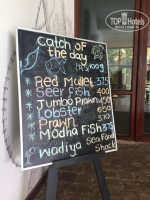 TOP HOTELS
catch of the
day
100g
* Red Mullet 375
* Seer fish 400
* Jumbo Prawn 450
* Lobster 650
* Prawn 370
* Modha Fish 375
Wadiya Sea Food
Shack